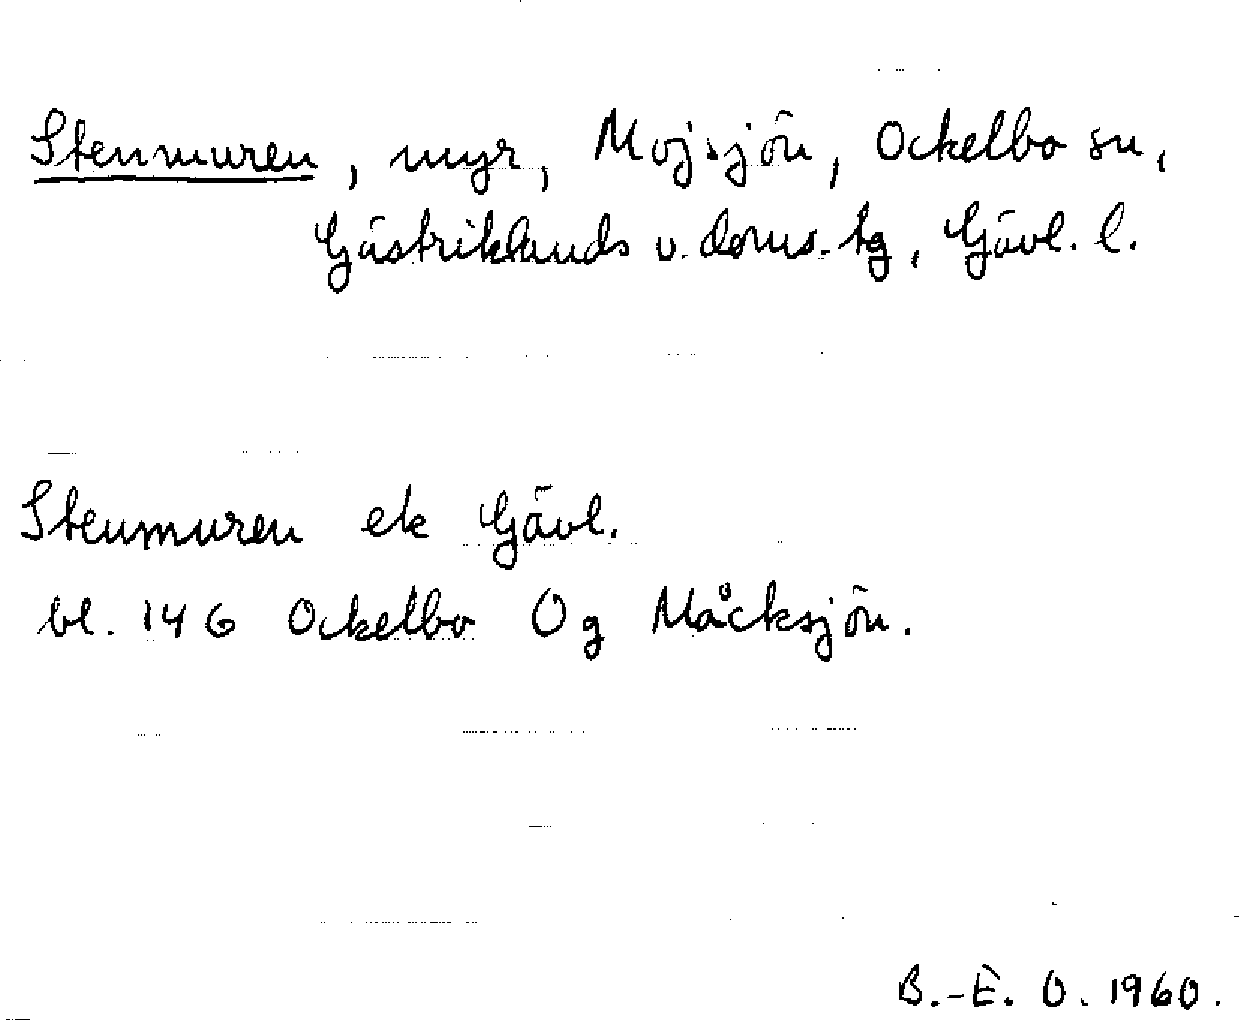 Stenmuren, myr, Mojsjön, Ockelbo sn,
Gästriklands v. doms. tg, Gävl. l.
Stenmuren ek Gävl.
bl. 146 Ockelbo Og Måcksjön.
B.-E. O. 1960.